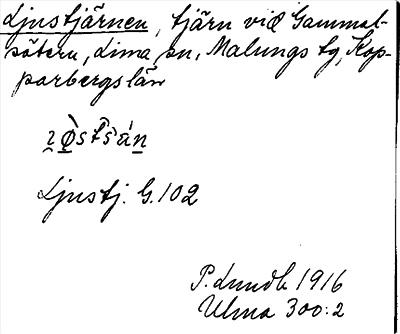 Ljustjärnen, tjärn vid Gammel-
sätern, Lima sn, Malungs tg, Kop-
parbergs län
Ljustj. G. 102
P. Lundh 1916
Ulma 300:2